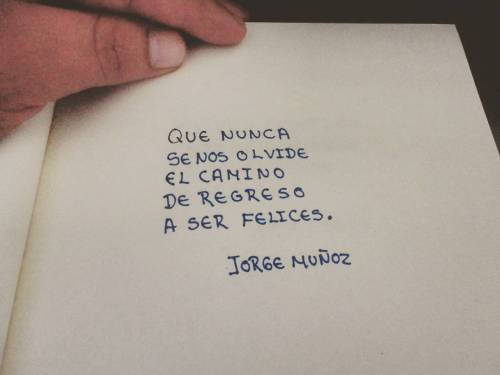 QUE NUNCA
SE NOS OLVIDE
EL CAMINO
DE REGRESO
A SER FELICES.
JORGE MUÑOZ